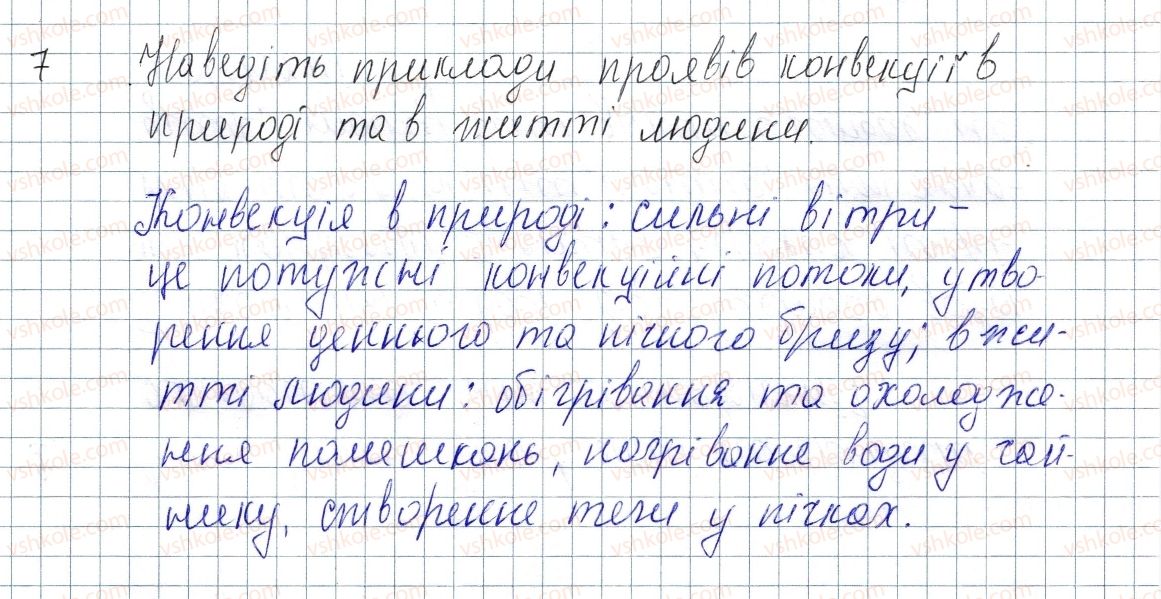 7 Наведіть приклади проявів конвекції в
природі та в житті людини.
Конвекція в природі: сильні вітри –
це потужні конвекційні потоки, утво-
рення денного та нічного бризу; в жи-
тті людини: обігрівання та охолодже-
ння помешкань, нагрівання води у чай-
нику, створення тяги у пічках.